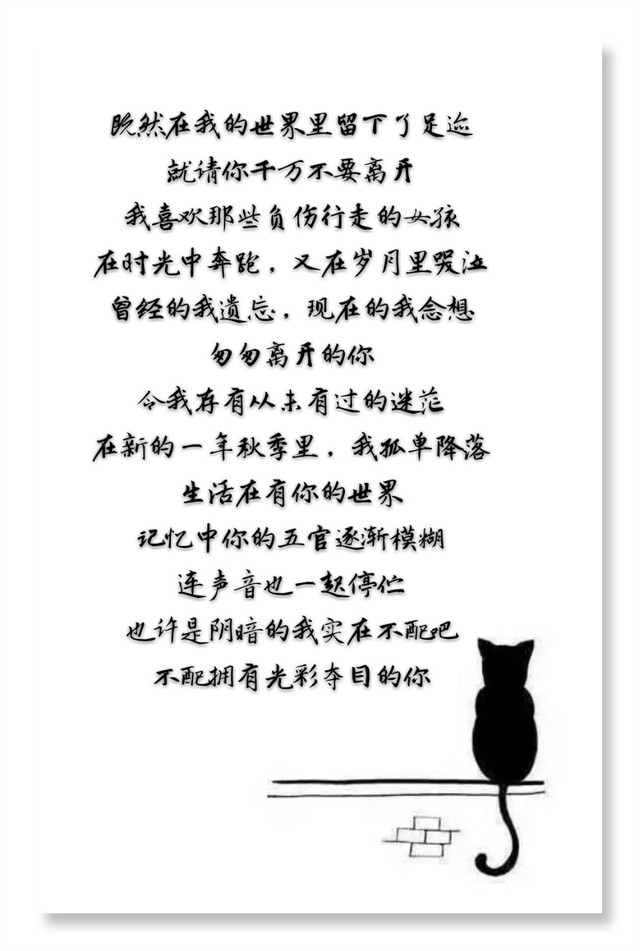 既然在我的世界里留下了足迹
就请你千万不要离开
我喜欢那些负伤行走的女孩
在时光中奔跑，又在岁月里哭泣
曾经的我遗忘，现在的我念想
匆匆离开的你
令我存有从未有过的迷茫
在新的一年秋季里，我孤单降落
生活在有你的世界
记忆中你的五官逐渐模糊
连声音也一起停伫
也许是阴暗的我实在不配吧
不配拥有光彩夺目的你